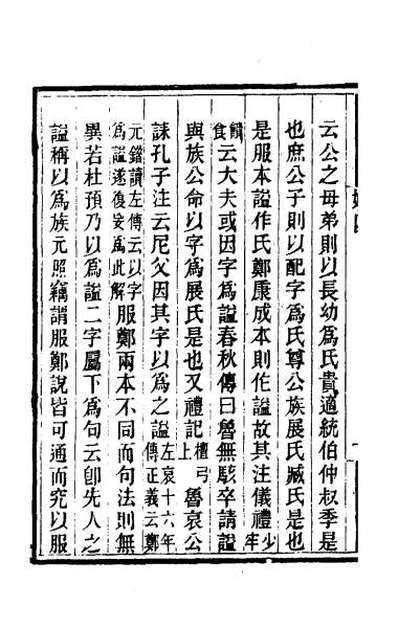 云公之母弟則以長幼爲氏貴適統伯仲叔季是
也庶公子則以配字爲氏尊公族展氏臧氏是也
是服本謚作氏鄭康成本則作謚故其注儀禮少牢
饋食云大夫或因字爲謚春秋傳曰魯無駭卒請謚
與族公命以字爲展氏是也又禮記檀弓上魯哀公
誄孔子注云尼父因其字以爲之謚左哀十六年傳正義云鄭
元錯讀左傳云以字爲謚遂復妄爲此解服鄭兩本不同而句法則無
異若杜預乃以爲謚二字屬下爲句云卽先人之
謚稱以爲族元照竊謂服鄭說皆可通而究以服